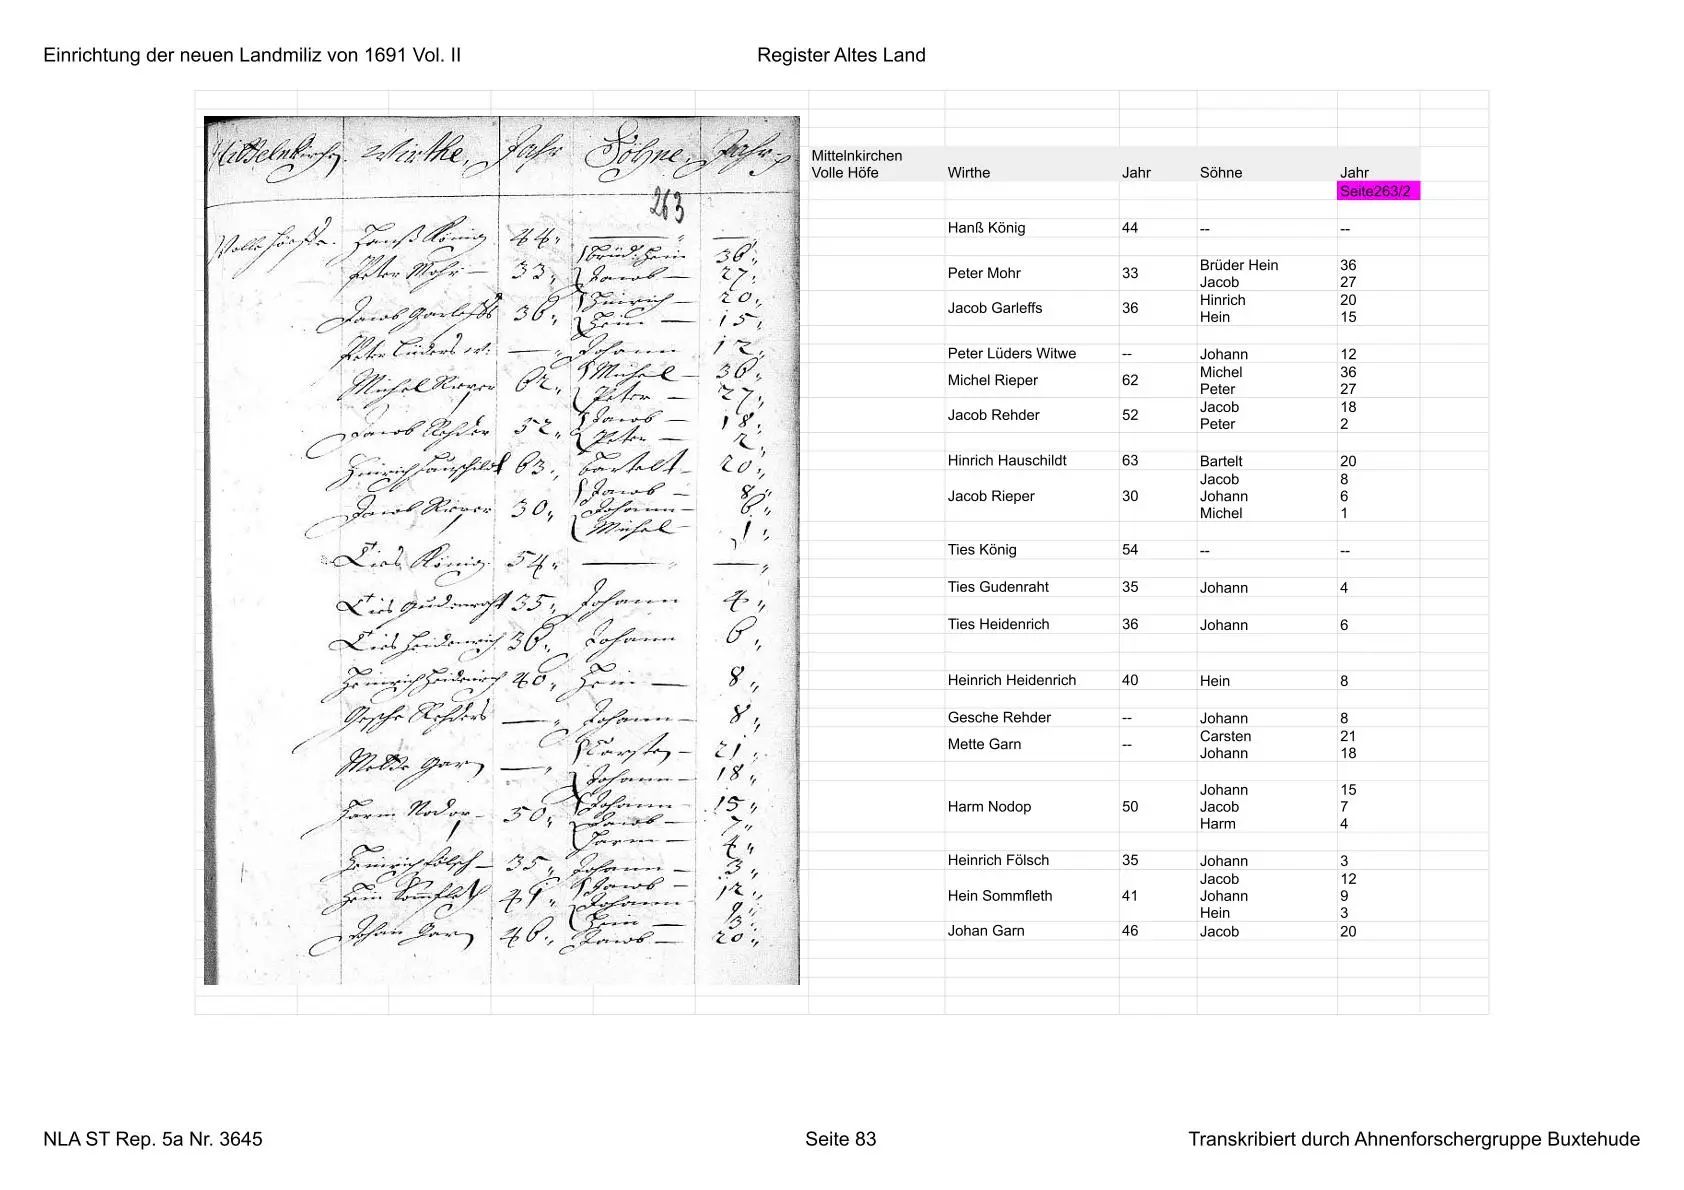 Einrichtung der neuen Landmiliz von 1691 Vol. II
Register Altes Land
Mittelnkirchen. Wirthe, Jahr Söhne, Jahr
263
Volle Höeffe. Hanß König 44 — —
Peter Mohr — 33 Brüd. Hein 36
Jacob — 27
Jacob Garleffs 36 Hinrich — 20
Hein — 15
Peter Lüders w: — Johann 12
Michel Rieper 62 Michel — 36
Peter — 27
Jacob Rehder 52 Jacob — 18
Peter — 2
Hinrich Hauschildt 63 Bartelt — 20
Jacob Rieper 30 Jacob — 8
Johann — 6
Michel — 1
Ties König 54 — —
Ties Gudenraht 35 Johann 4
Ties Heidenrich 36 Johann 6
Heinrich Heidenrich 40 Hein — 8
Gesche Rehders — Johann — 8
Mette Garn — Carsten — 21
Johann — 18
Harm Nodop — 50 Johann — 15
Jacob — 7
Harm — 4
Heinrich Fölsch — 35 Johann — 3
Hein Sommfleth 41 Jacob — 12
Johann 9
Hein — 3
Johan Garn 46 Jacob — 20
Mittelnkirchen
Volle Höfe Wirthe Jahr Söhne Jahr
Seite263/2
Hanß König 44 -- --
Peter Mohr 33 Brüder Hein 36
Jacob 27
Jacob Garleffs 36 Hinrich 20
Hein 15
Peter Lüders Witwe -- Johann 12
Michel Rieper 62 Michel 36
Peter 27
Jacob Rehder 52 Jacob 18
Peter 2
Hinrich Hauschildt 63 Bartelt 20
Jacob Rieper 30 Jacob 8
Johann 6
Michel 1
Ties König 54 -- --
Ties Gudenraht 35 Johann 4
Ties Heidenrich 36 Johann 6
Heinrich Heidenrich 40 Hein 8
Gesche Rehder -- Johann 8
Mette Garn -- Carsten 21
Johann 18
Harm Nodop 50 Johann 15
Jacob 7
Harm 4
Heinrich Fölsch 35 Johann 3
Hein Sommfleth 41 Jacob 12
Johann 9
Hein 3
Johan Garn 46 Jacob 20
NLA ST Rep. 5a Nr. 3645
Seite 83
Transkribiert durch Ahnenforschergruppe Buxtehude